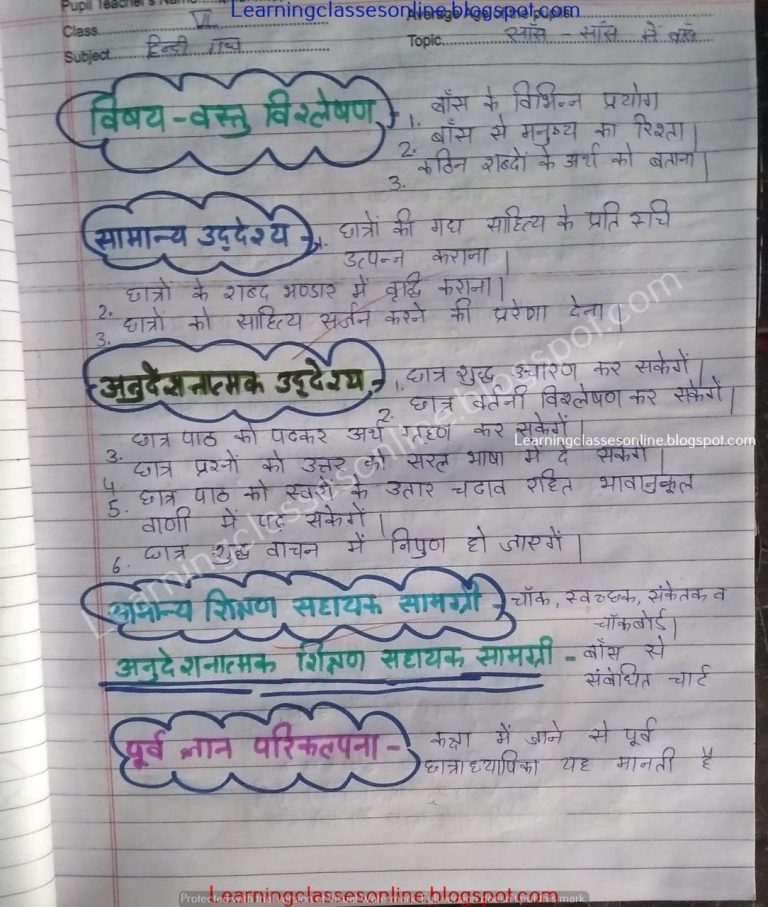 Pupil Teacher's Name
Learningclassesonline.blogspot.com
Average Age of the Pupils
Class VI
Topic साँस - साँस में बाँस
Subject हिन्दी गद्य
विषय-वस्तु विश्लेषण - 1. बाँस के विभिन्न प्रयोग
2. बाँस से मनुष्य का रिश्ता।
3. कठिन शब्दों के अर्थ को बताना।
सामान्य उद्देश्य - 1. छात्रों की गद्य साहित्य के प्रति रुचि
उत्पन्न कराना।
2. छात्रों के शब्द भण्डार में वृद्धि कराना।
3. छात्रों को साहित्य सर्जन करने की प्ररेणा देना।
अनुदेशनात्मक उद्देश्य - 1. छात्र शुद्ध उच्चारण कर सकेगें।
2. छात्र वर्तनी विश्लेषण कर सकेगें।
3. छात्र पाठ को पढकर अर्थ ग्रहण कर सकेगें।
Learningclassesonline.blogspot.com
4. छात्र प्रश्नों को उत्तर को सरल भाषा में दे सकेगे।
5. छात्र पाठ को स्वरों के उतार चढाव सहित भावानुकूल
वाणी में पढ़ सकेगें।
6. छात्र शुद्ध वाचन में निपुण हो जाएगें।
Learningclassesonline.blogspot.com
सामान्य शिक्षण सहायक सामग्री - चॉक, स्वच्छक, संकेतक व
चॉकबोर्ड।
अनुदेशनात्मक शिक्षण सहायक सामग्री - बाँस से
संबंधित चार्ट
पूर्व ज्ञान परिकल्पना - कक्षा में जाने से पूर्व
छात्राध्यापिका यह मानती है
Learningclassesonline.blogspot.com